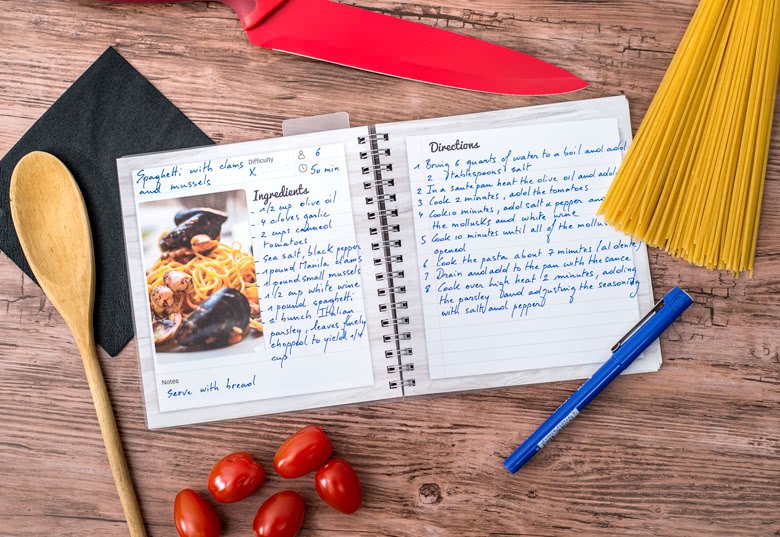 Spaghetti with clams
and mussels
Difficulty
X
6
50 min
Ingredients
1/2 cup olive oil
4 cloves garlic
2 cups canned
tomatoes
Sea salt, black pepper
1 pound Manila clams
1 pound small mussels
1/2 cup white wine
1 pound spaghetti
1 bunch Italian
parsley, leaves finely
chopped to yield 1/4
cup
Notes
Serve with bread
Directions
1 Bring 6 quarts of water to a boil and add
2 tablespoons salt
2 In a saute pan heat the olive oil and add
3 Cook 2 minutes, add the tomatoes
4 Cook 10 minutes, add salt & pepper and
the mollusks and white wine
5 Cook 10 minutes until all of the mollusks
opened
6 Cook the pasta about 7 minutes (al dente)
7 Drain and add to the pan with the sauce
8 Cook over high heat 2 minutes, adding
the parsley and adjusting the seasoning
with salt and pepper